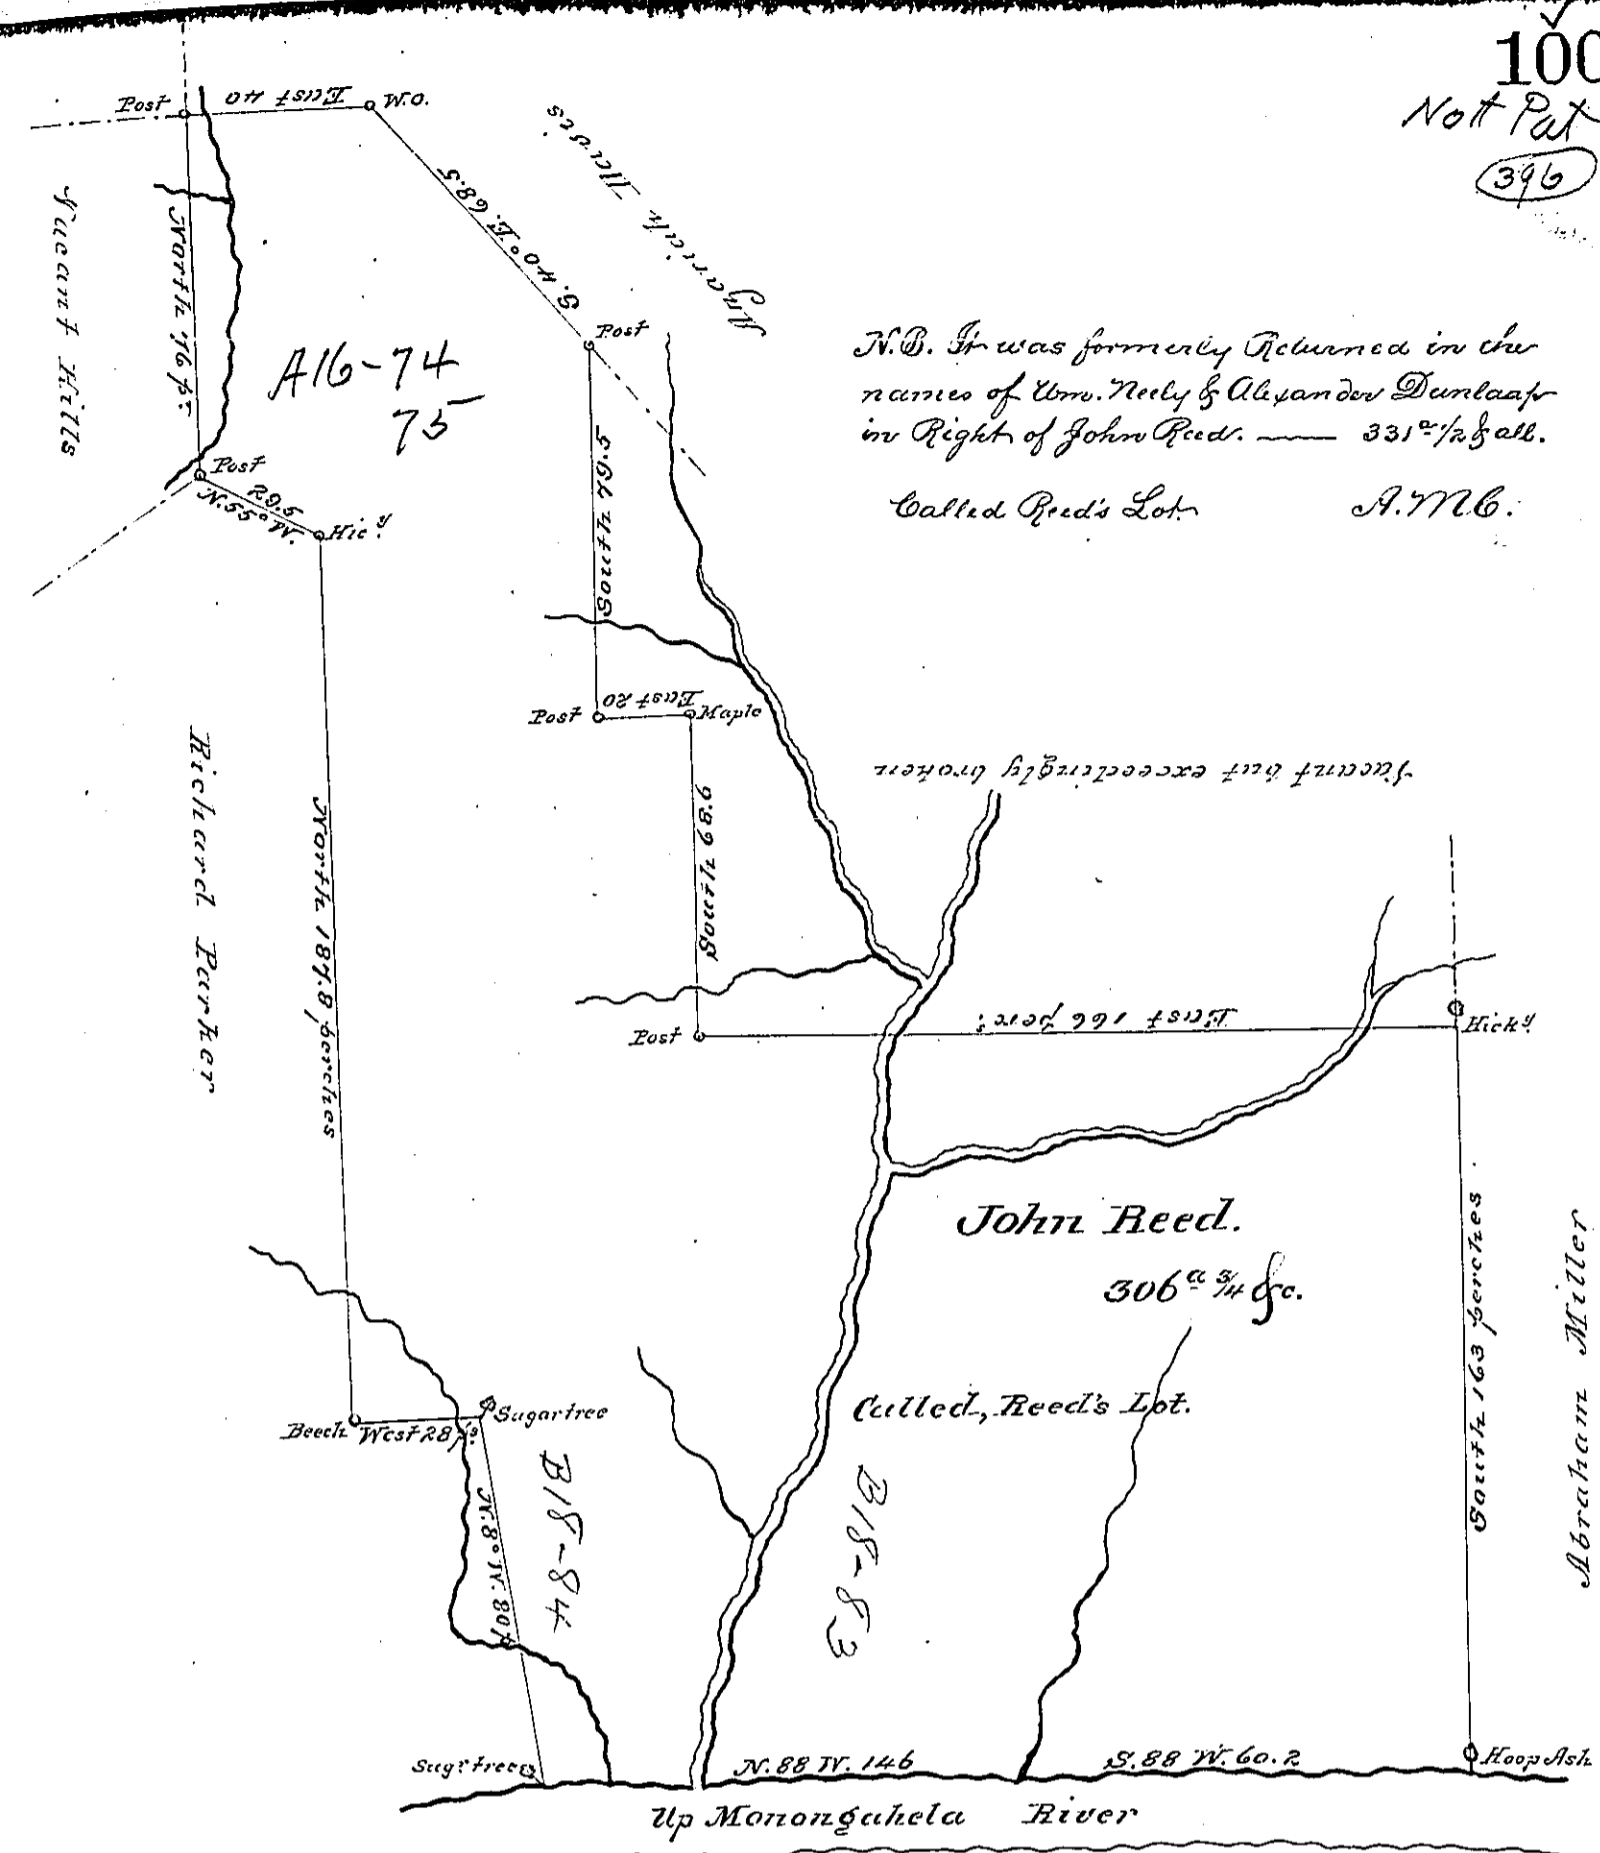 100
Nott Pat
396
Post
East 40
W.O.
Azariah Davis
S. 40° E. 68.5
North 76 ps.
Vacant Hills
A16-74
75
Post
Post
29.5
N.55° W.
Hic.y
N.B. It was formerly Returned in the
names of Wm. Neely & Alexander Dunlaap
in Right of John Reed. — 331a. 1/2 & all.
Called Reed's Lot. A.M.C.
South 79.5
Post
East 20
Maple
Vacant but exceedingly broken
Richard Parker
North 187.8 perches
South 69.6
Post
East 166 perc.s
Hick.y
John Reed.
306 a 3/4 &c.
Called, Reed's Lot.
South 163 perches
Abraham Miller
Beech
West 28 ps.
Sugartree
N. 8° W. 80 p
B18-84
B18-83
Sug.rtree
N. 88 W. 146
S. 88 W. 60.2
Hoop Ash
Up Monongahela River